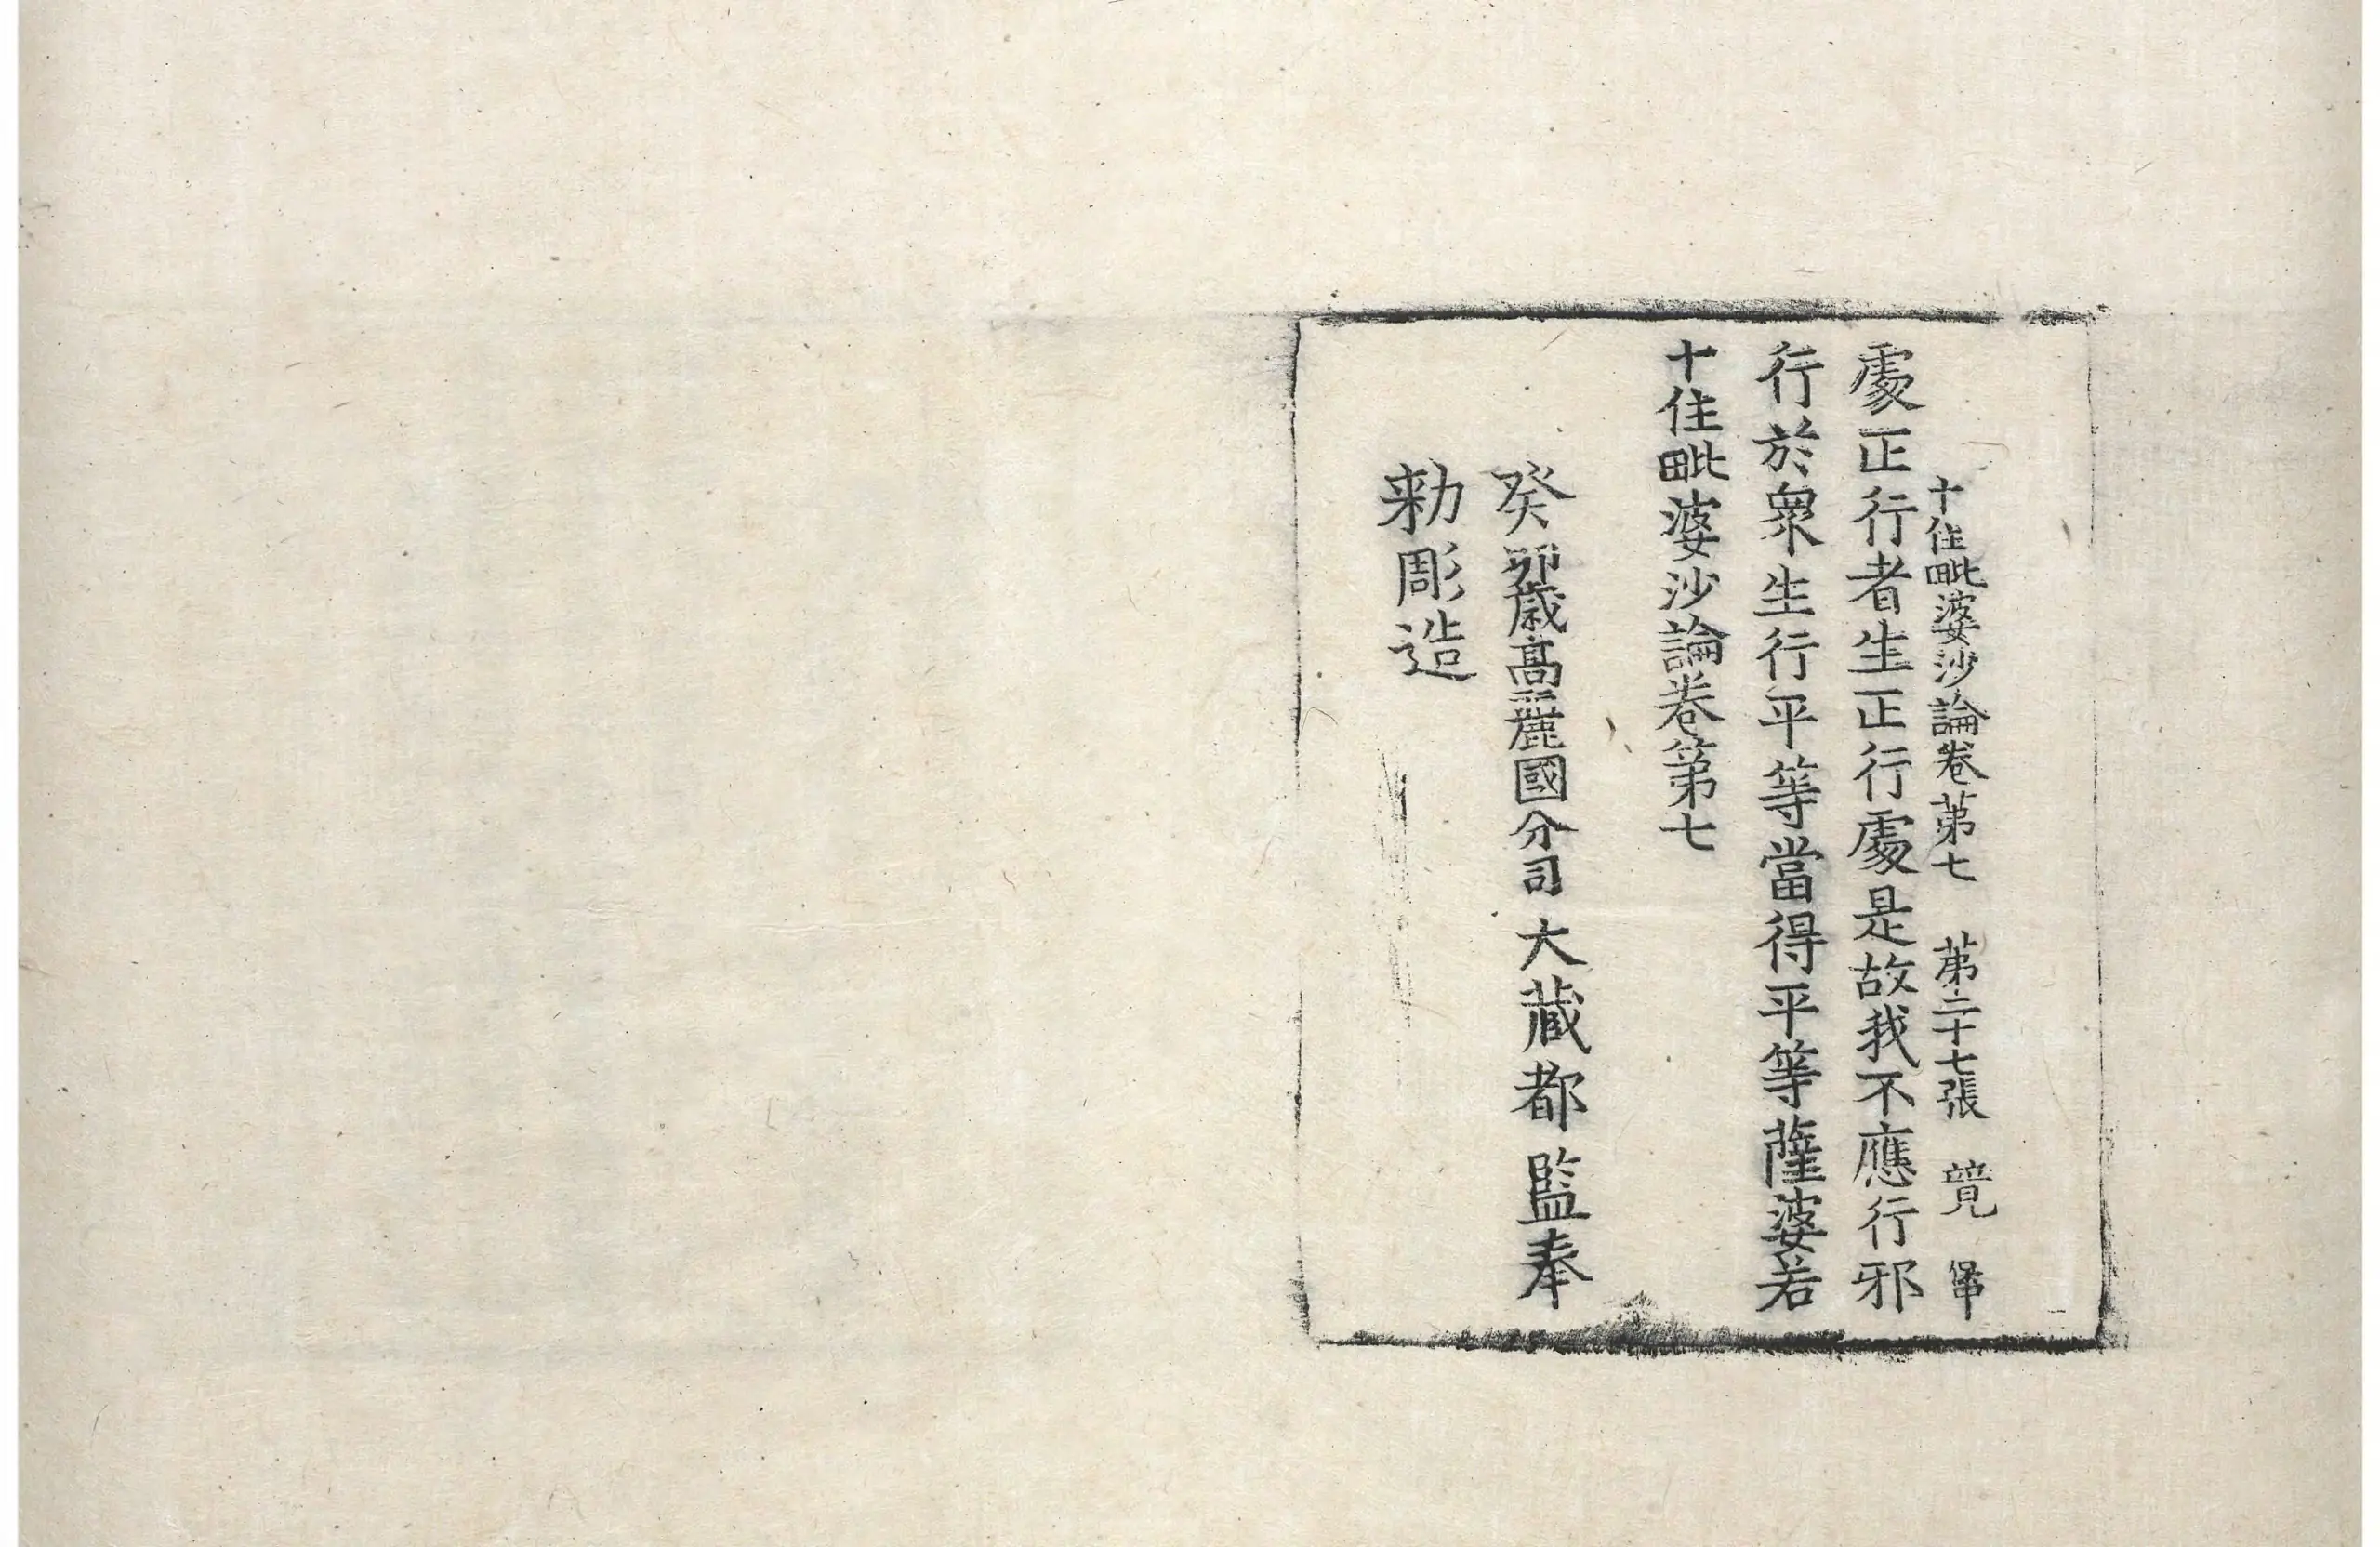 十住毗婆沙論卷第七 第二十七張 競
處正行者生正行處是故我不應行邪
行於衆生行平等當得平等薩婆若
十住毗婆沙論卷第七
癸卯歲高麗國分司大藏都監奉
勑彫造